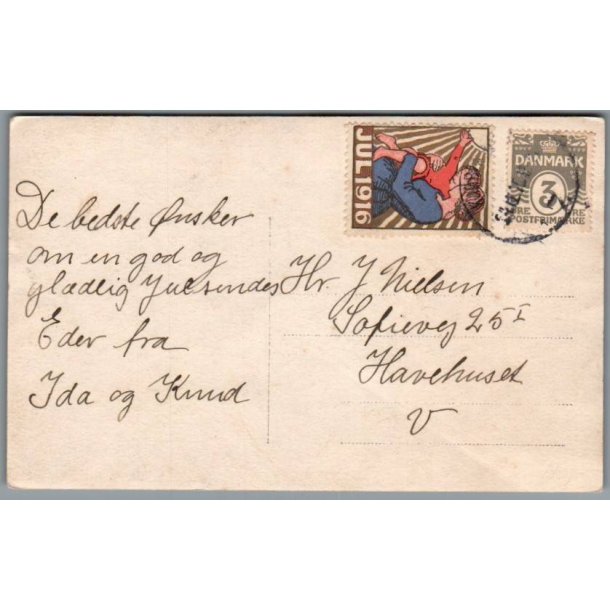 De bedste Ønsker
om en god og
glædlig Jul sendes
Eder fra
Ida og Knud
JUL 1916
DANMARK
3
ØRE ØRE
POSTFRIMÆRKE
Hr. J Nielsen
Sofievej 25 I
Havehuset
V